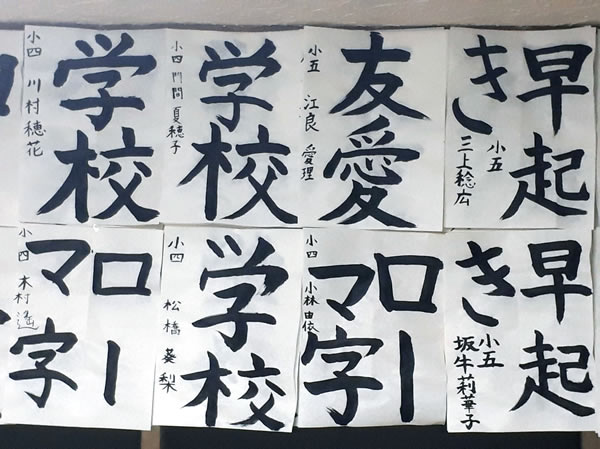 学校
小四 川村穂花
学校
小四 門間夏穂子
友愛
小五 江良愛理
早起
き
小五 三上稔広
ロー
マ字
小四 木村遥
学校
小四 松橋葵梨
ロー
マ字
小四 小林由依
早起
き
小五 坂牛莉華子